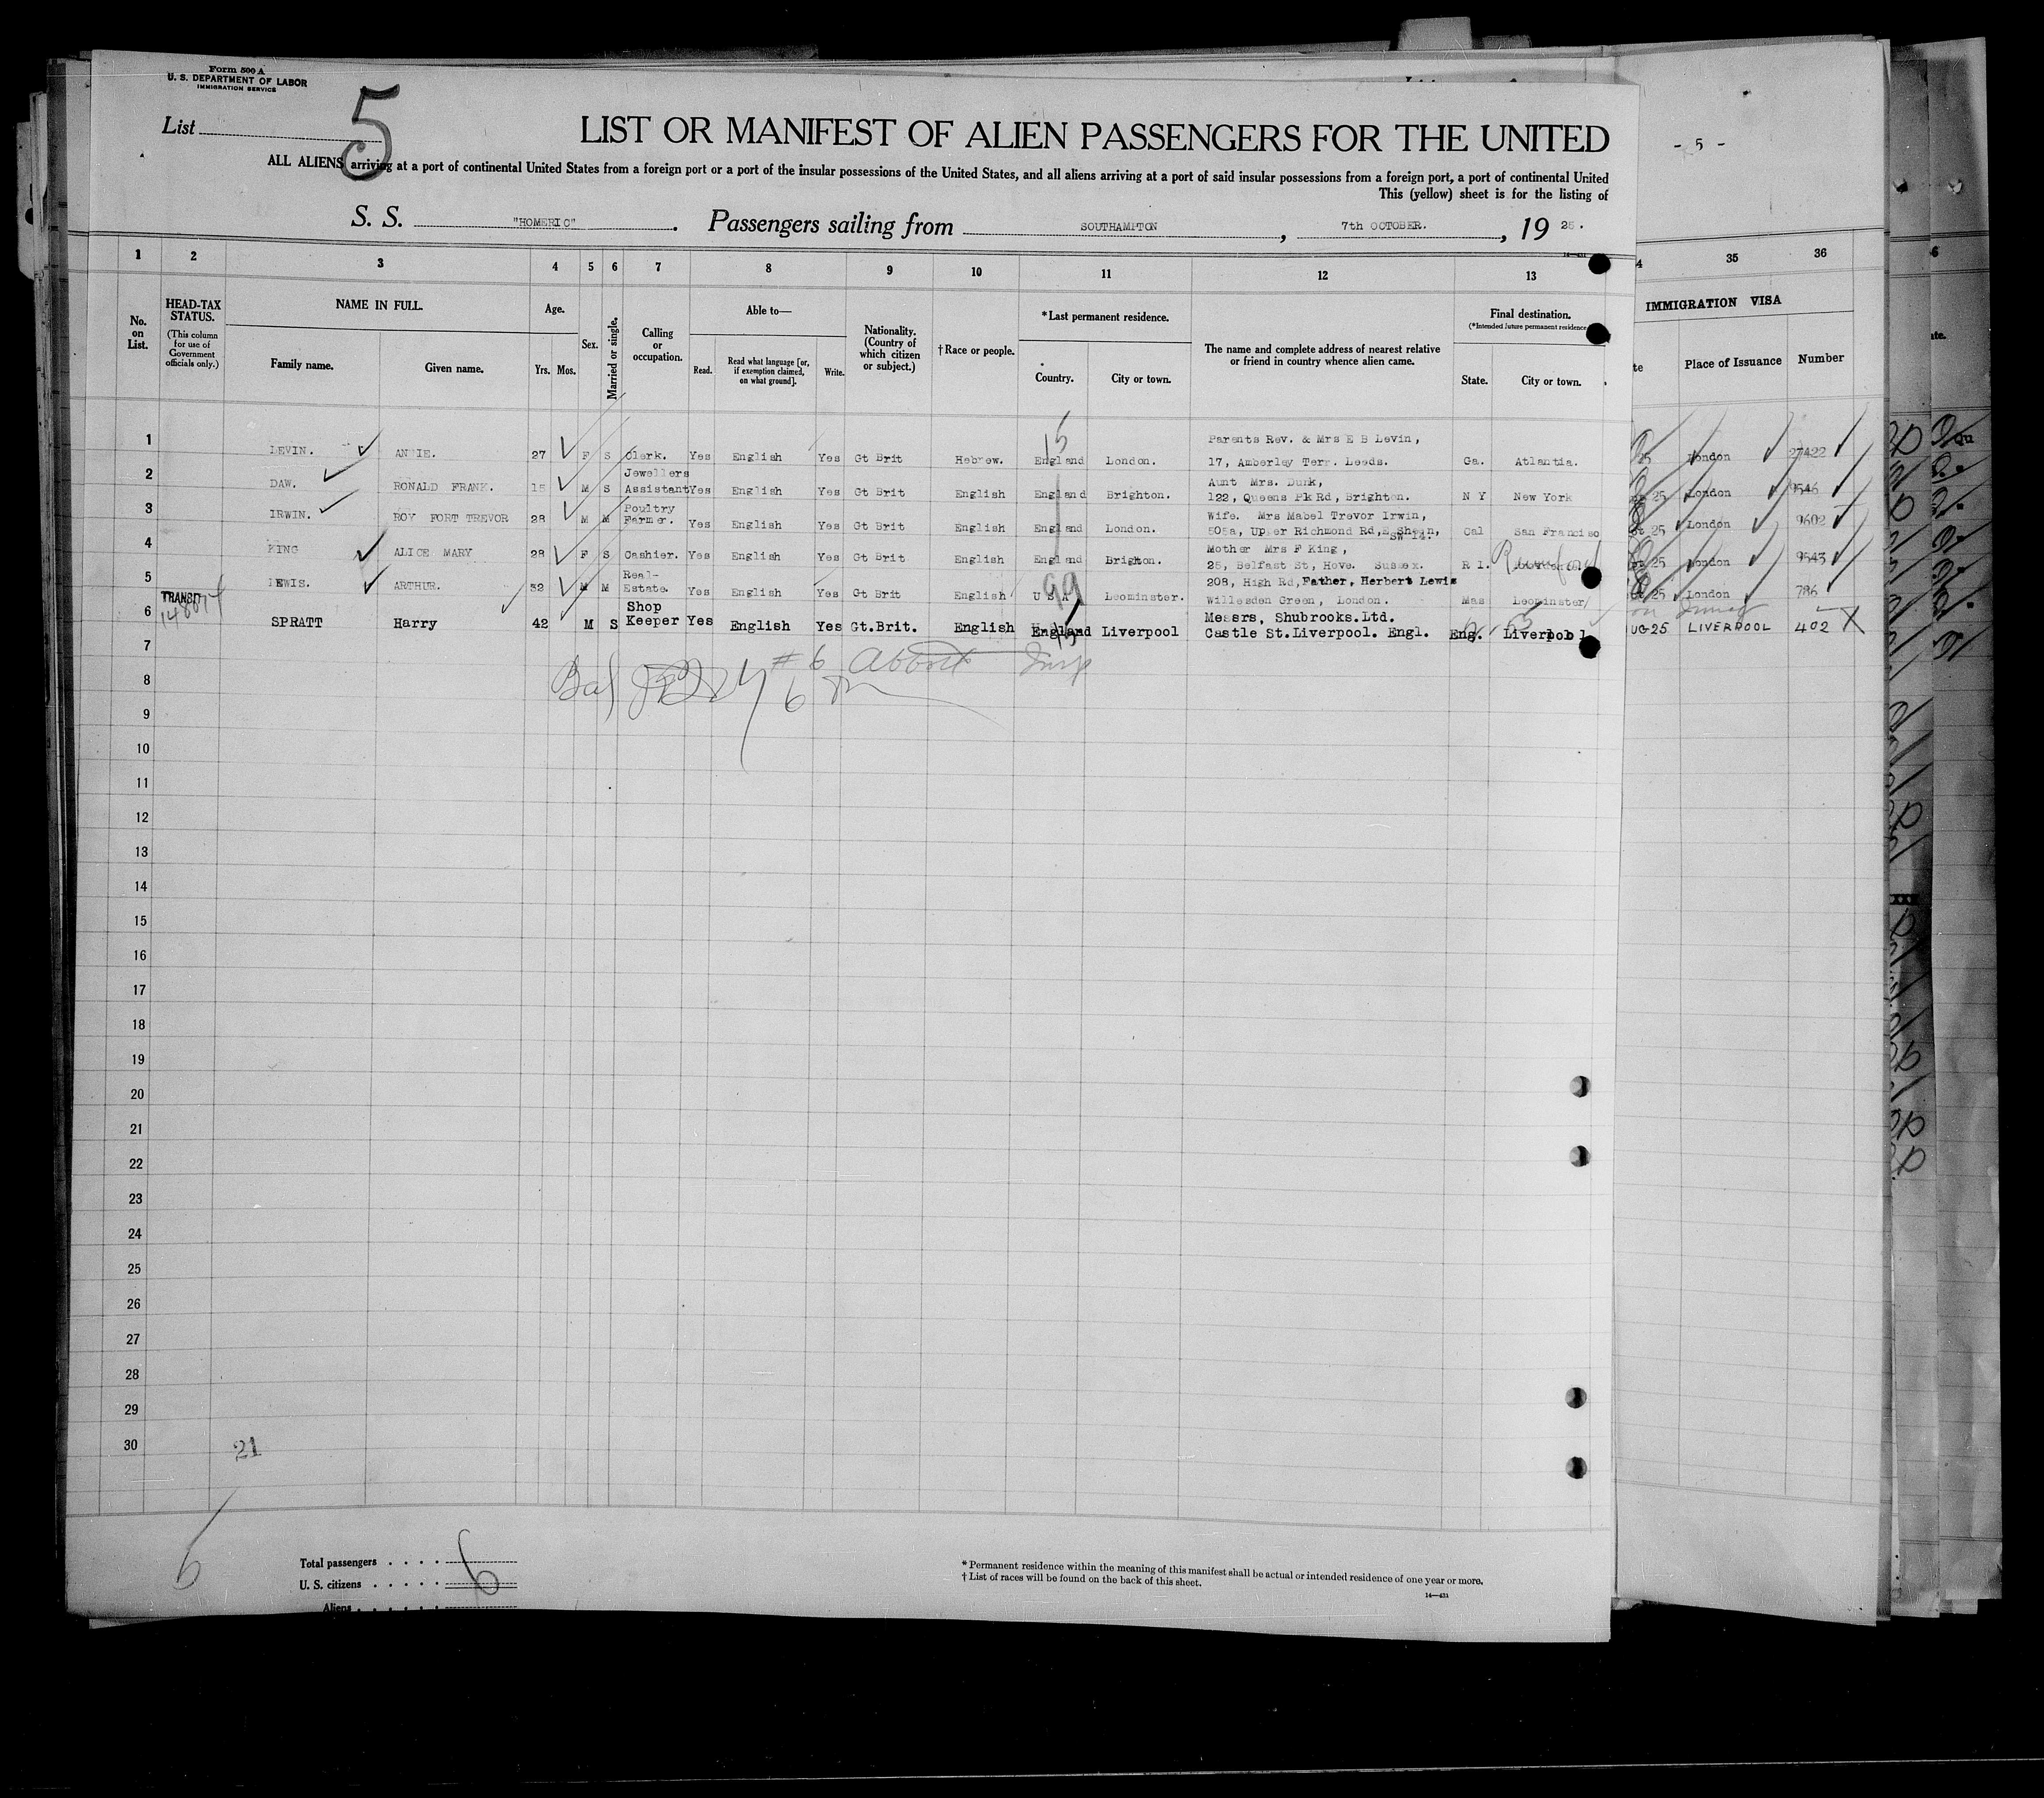 Form 500 A
U. S. DEPARTMENT OF LABOR
IMMIGRATION SERVICE
List 5
LIST OR MANIFEST OF ALIEN PASSENGERS FOR THE UNITED
ALL ALIENS arriving at a port of continental United States from a foreign port or a port of the insular possessions of the United States, and all aliens arriving at a port of said insular possessions from a foreign port, a port of continental United
This (yellow) sheet is for the listing of
S. S. "HOMERIC". Passengers sailing from SOUTHAMPTON, 7th OCTOBER., 19 25.
- 5 -
1 2 3 4 5 6 7 8 9 10 11 12 13 35 36
No. on List.
HEAD-TAX STATUS.
(This column for use of Government officials only.)
NAME IN FULL.
Family name. Given name.
Age.
Yrs. Mos.
Sex.
Married or single.
Calling or occupation.
Able to—
Read. Read what language [or, if exemption claimed, on what ground]. Write.
Nationality. (Country of which citizen or subject.)
† Race or people.
* Last permanent residence.
Country. City or town.
The name and complete address of nearest relative or friend in country whence alien came.
Final destination.
(*Intended future permanent residence
State. City or town.
IMMIGRATION VISA
Place of Issuance Number
1 LEVIN. ANNIE. 27 F S Clerk. Yes English Yes Gt Brit Hebrew. England London. Parents Rev. & Mrs E B Levin, 17, Amberley Terr. Leeds. Ga. Atlantia. 25 London 27422
2 DAW. RONALD FRANK. 15 M S Jewellers Assistant Yes English Yes Gt Brit English England Brighton. Aunt Mrs. Durk, 122, Queens Pk Rd, Brighton. N Y New York 25 London 9546
3 IRWIN. ROY FORT TREVOR 28 M M Poultry Farmer. Yes English Yes Gt Brit English England London. Wife. Mrs Mabel Trevor Irwin, 505a, Upper Richmond Rd, E Sheen, SW 14. Cal San Franciso 25 London 9602
4 KING ALICE MARY 28 F S Cashier. Yes English Yes Gt Brit English England Brighton. Mother Mrs F King, 25, Belfast St, Hove. Sussex. R I. 25 London 9543
5 LEWIS. ARTHUR. 32 M M Real-Estate. Yes English Yes Gt Brit English U S A Leominster. 208, High Rd, Father, Herbert Lewis Willesden Green, London. Mas Leominster 25 London 786
TRANSIT
6 SPRATT Harry 42 M S Shop Keeper Yes English Yes Gt.Brit. English England Liverpool Messrs, Shubrooks.Ltd. Castle St.Liverpool. Engl. Eng. Liverpool UG-25 LIVERPOOL 402 X
7
# 6 Abbott Insp
8
9
10
11
12
13
14
15
16
17
18
19
20
21
22
23
24
25
26
27
28
29
30
21
6
Total passengers . . . . 6
U. S. citizens . . . . .
Aliens . . . . . .
* Permanent residence within the meaning of this manifest shall be actual or intended residence of one year or more.
† List of races will be found on the back of this sheet.
14—431